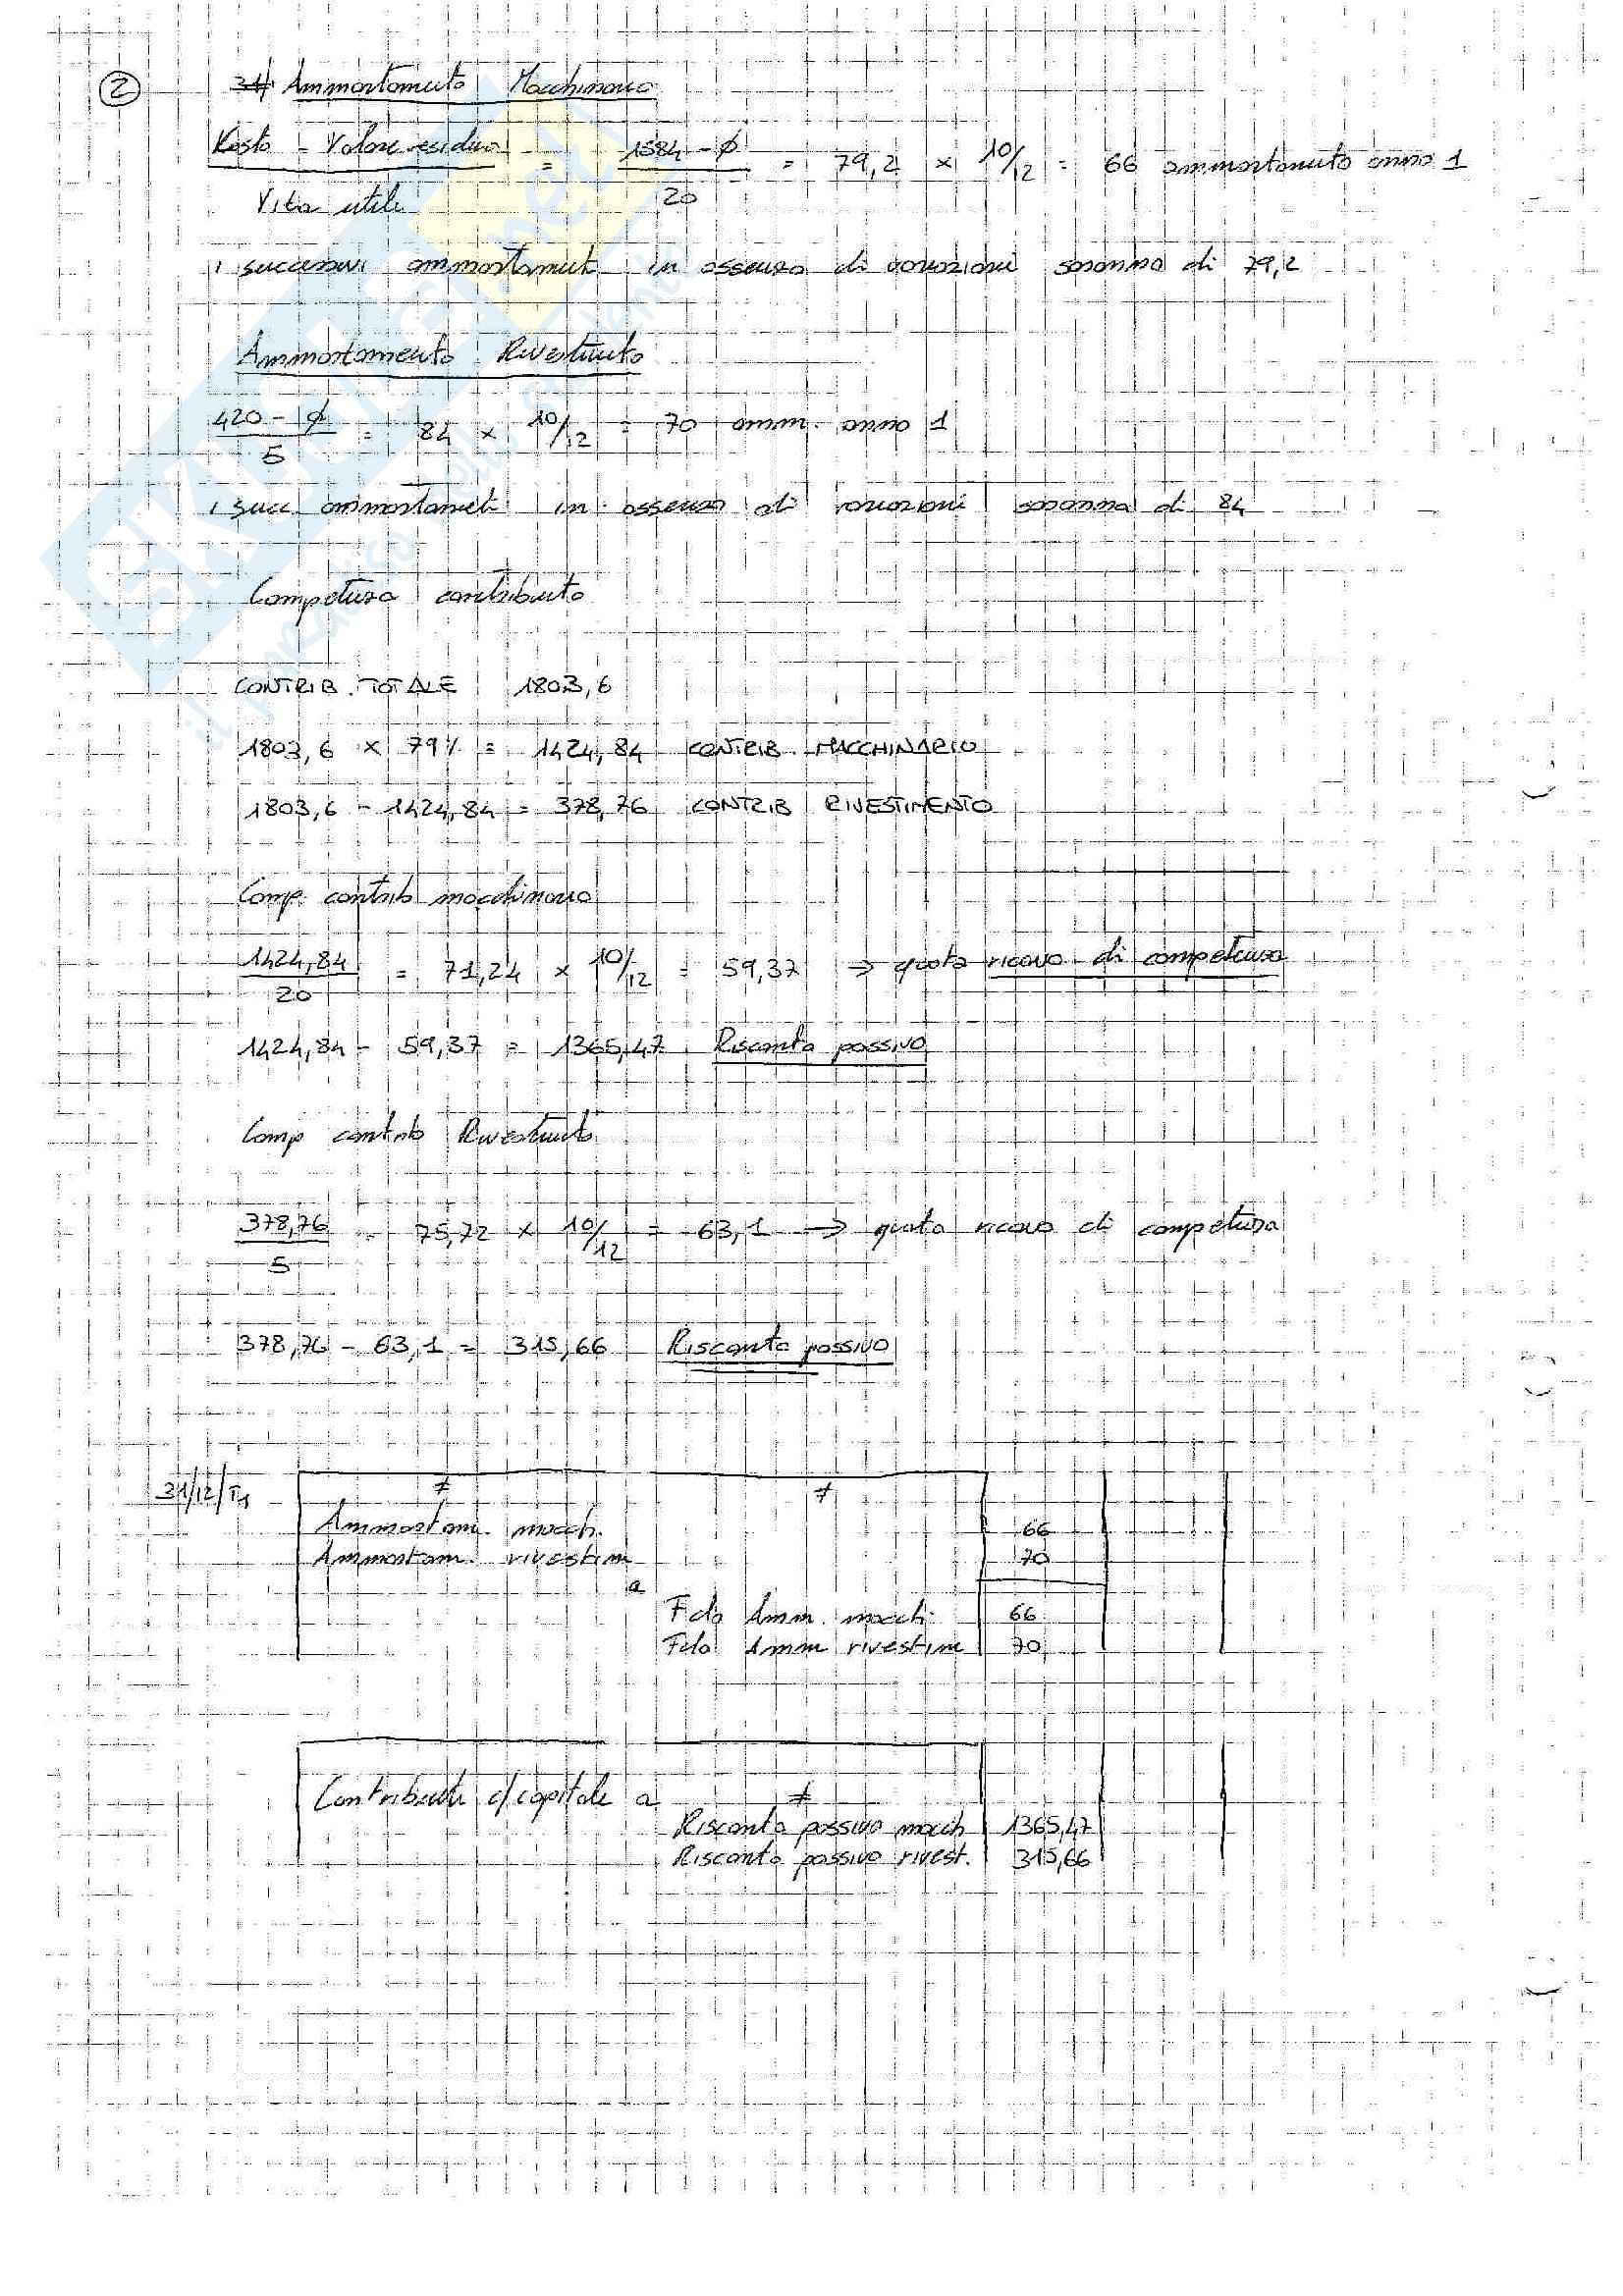 ② Ammortamento Macchinario
Costo - Valore residuo = 1584 - ∅ = 79,2 x 10/12 = 66 ammortamento anno 1
Vita utile 20
i successivi ammortamenti in assenza di variazioni saranno di 79,2
Ammortamento Rivestimento
420 - ∅ = 84 x 10/12 = 70 amm. anno 1
5
i succ ammortamenti in assenza di variazioni saranno di 84
Competenza contributo
CONTRIB. TOTALE 1803,6
1803,6 x 79% = 1424,84 CONTRIB. MACCHINARIO
1803,6 - 1424,84 = 378,76 CONTRIB RIVESTIMENTO
Comp. contrib macchinario
1424,84 = 71,24 x 10/12 = 59,37 ⇒ quota ricavo di competenza
20
1424,84 - 59,37 = 1365,47 Risconto passivo
Comp contrib Rivestimento
378,76 = 75,72 x 10/12 = 63,1 → quota ricavo di competenza
5
378,76 - 63,1 = 315,66 Risconto passivo
31/12/T1 ≠ ≠
Ammortam. macch. 66
Ammortam. rivestim 70
a
Fdo Amm. macch. 66
Fdo Amm rivestim 70
Contributi c/capitale a ≠
Risconto passivo macch 1365,47
Risconto passivo rivest. 315,66